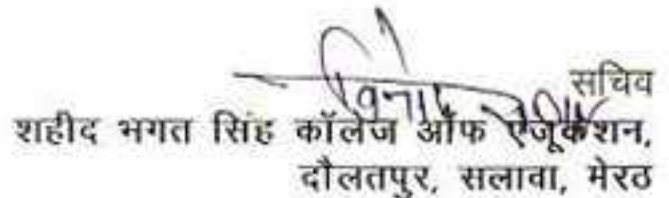 सचिव
शहीद भगत सिंह कॉलेज ऑफ एजूकेशन,
दौलतपुर, सलावा, मेरठ